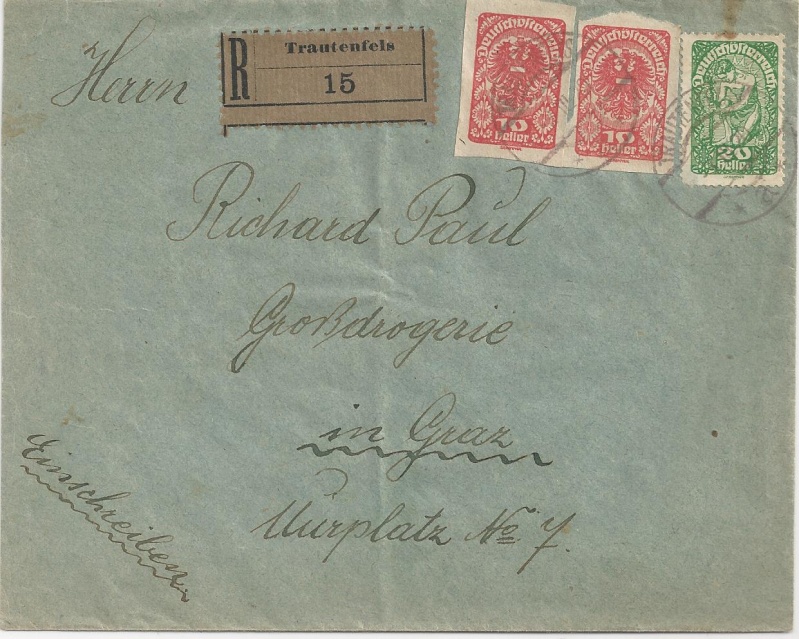 Herrn
R
Trautenfels
15
Deutschösterreich
10
heller
Deutschösterreich
10
heller
Deutschösterreich
20
heller
Richard Paul
Großdrogerie
in Graz
Murplatz No 7.
Einschreiben